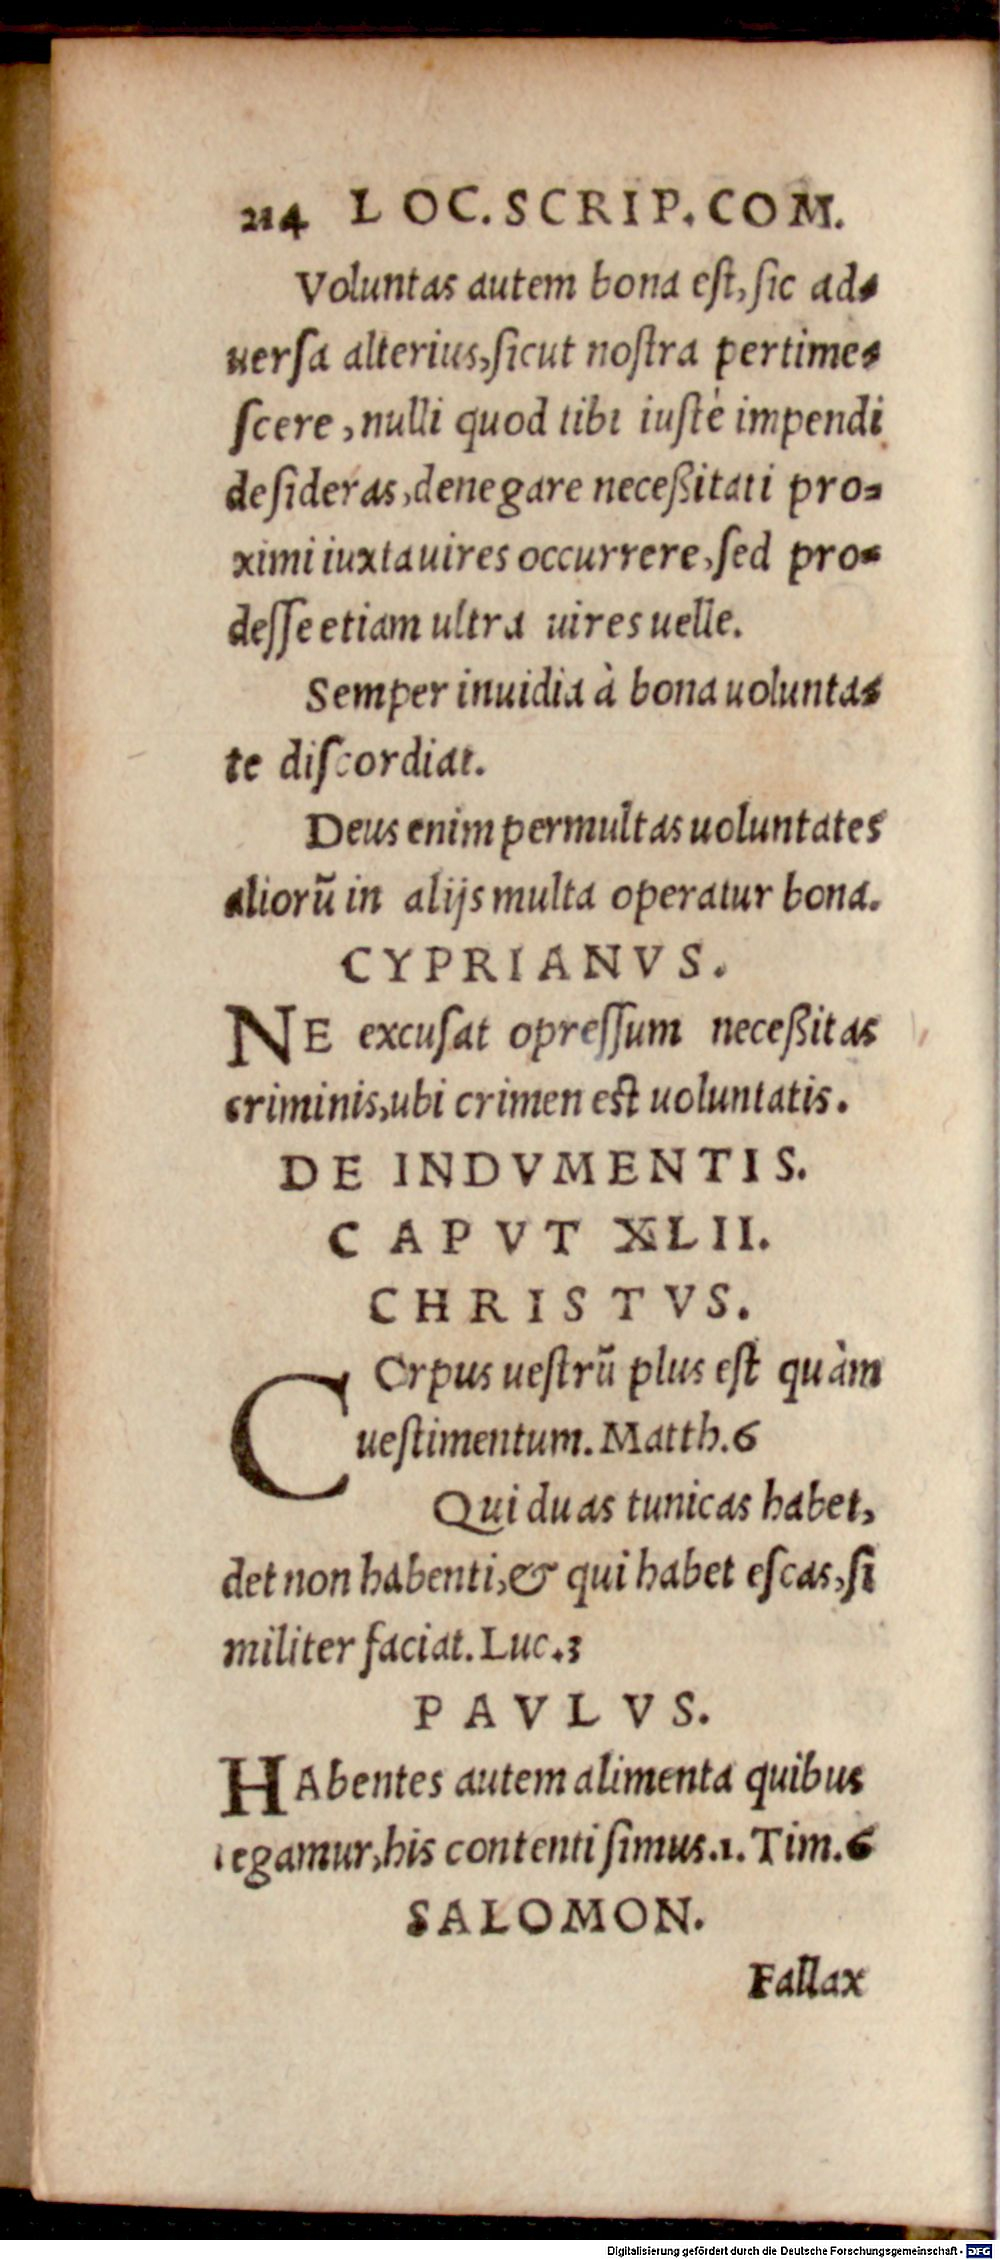 214 LOC. SCRIP. COM.
Voluntas autem bona est, sic ad-
uersa alterius, sicut nostra pertime-
scere, nulli quod tibi iustè impendi
desideras, denegare neceßitati pro-
ximi iuxta uires occurrere, sed pro-
desse etiam ultra uires uelle.
Semper inuidia à bona uolunta-
te discordiat.
Deus enim permultas uoluntates
aliorū in alijs multa operatur bona.
CYPRIANVS.
NE excusat opressum neceßitas
criminis, ubi crimen est uoluntatis.
DE INDVMENTIS.
CAPVT XLII.
CHRISTVS.
COrpus uestrū plus est quàm
uestimentum. Matth. 6
Qui duas tunicas habet,
det non habenti, & qui habet escas, si
militer faciat. Luc. 3
PAVLVS.
HAbentes autem alimenta quibus
tegamur, his contenti simus. 1. Tim. 6
SALOMON.
Fallax
Digitalisierung gefördert durch die Deutsche Forschungsgemeinschaft - DFG